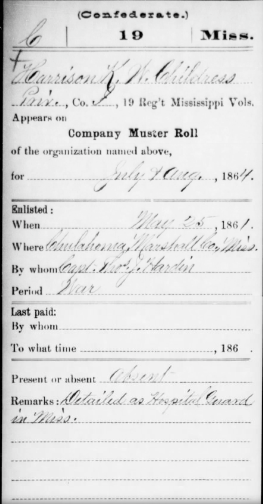 (Confederate.)
C 19 Miss.
Harrison K. W. Childress
Priv., Co. I, 19 Reg't Mississippi Vols.
Appears on
Company Muster Roll
of the organization named above,
for July & Aug., 1864.
Enlisted:
When May 25, 1861.
Where Chulahoma, Marshall Co, Miss.
By whom Capt. Thos. J. Hardin
Period War
Last paid:
By whom
To what time , 186 .
Present or absent Absent
Remarks: Detailed as Hospital Guard
in Miss.